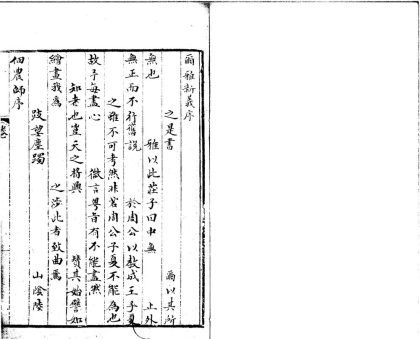 爾雅新義序
之是書　爾以其所
無也　雅以此莊子曰中無　止外
無正而不行舊說　於周公以教成王子夏
之雖不可考然非若周公子夏不能為也
故予每盡心　微言粵旨有不能盡然
知者也豈天之將興　贊其始譬如
繪畫我為　之涉此者致曲焉
跂望塵躅　山陰陸
佃農師序